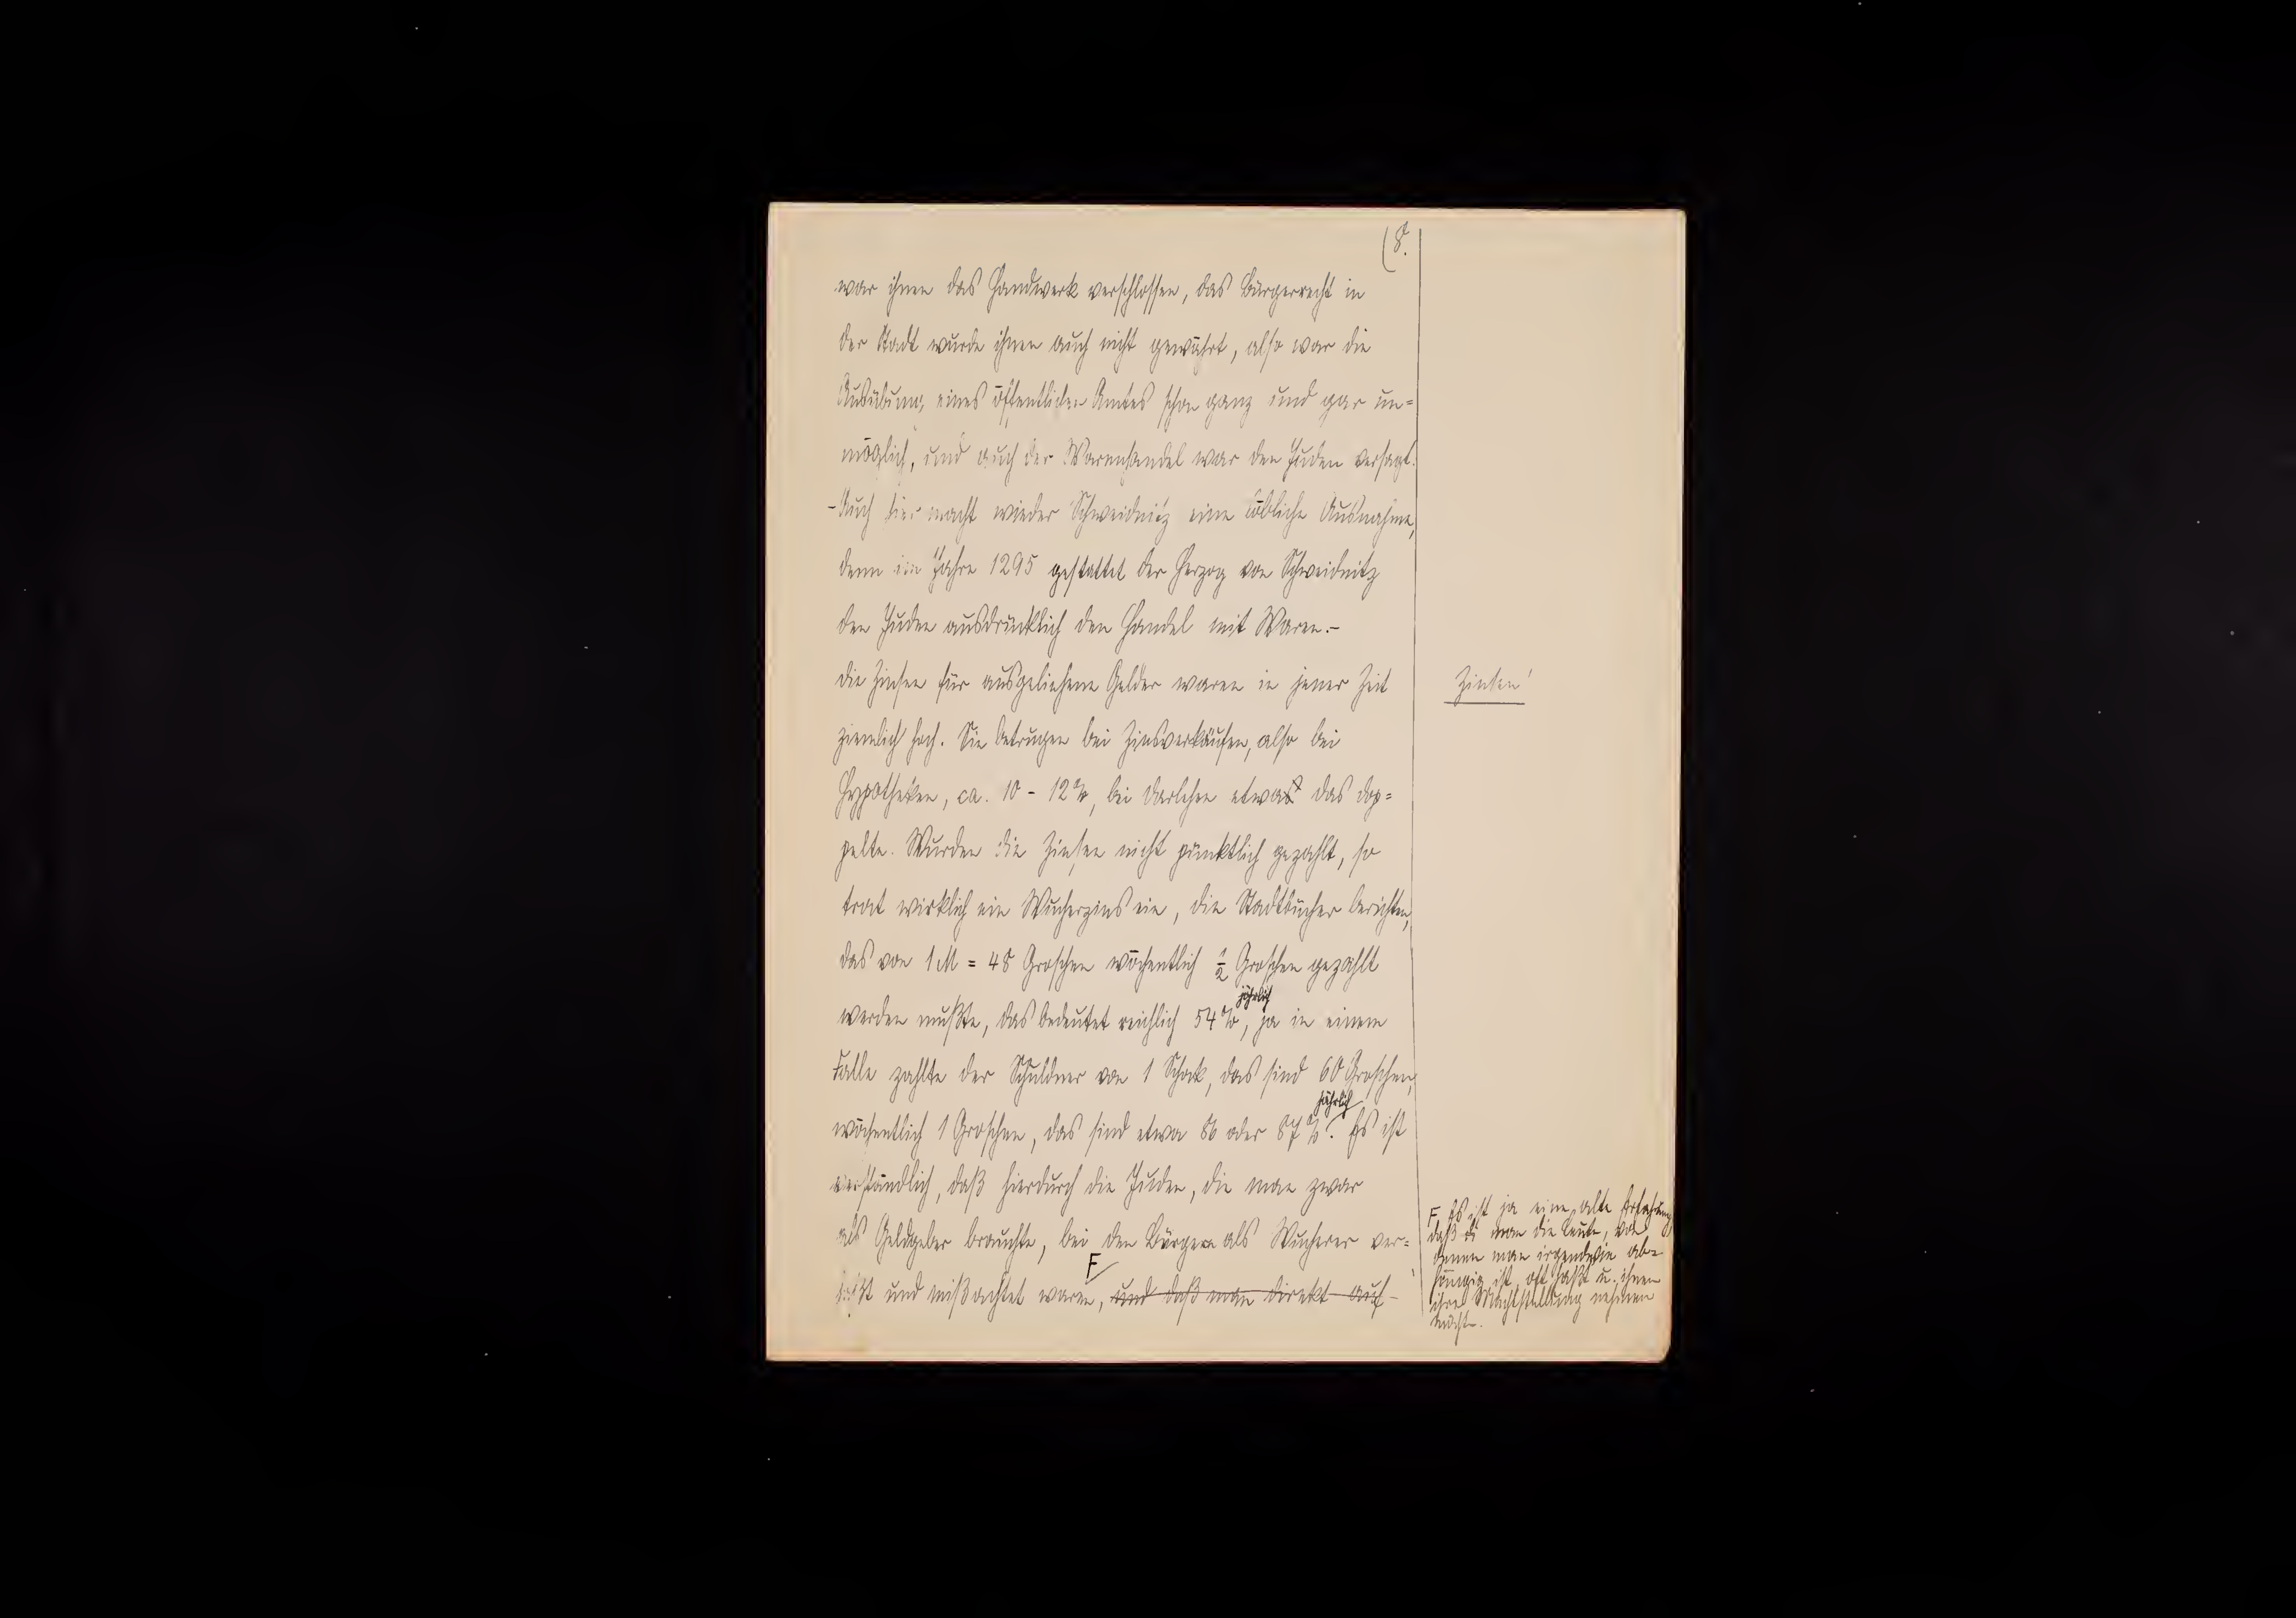 (8.
war ihnen das Handwerk verschlossen, das Bürgerrecht in
der Stadt wurde ihnen auch nicht gewährt, also war die
Ausübung eines öffentlichen Amtes schon ganz und gar un=
möglich, und auch der Warenhandel war den Juden versagt.
-Auch hier macht wieder Schweidnitz eine löbliche Ausnahme,
denn im Jahre 1295 gestattet der Herzog von Schweidnitz
den Juden ausdrücklich den Handel mit Waren.-
Die Zinsen für ausgeliehene Gelder waren in jener Zeit
Zinsen!
ziemlich hoch. Sie betrugen bei Zinsverkäufen, also bei
Hypotheken, ca. 10 - 12%, bei Darlehen etwas das dop=
pelte. Wurden die Zinsen nicht pünktlich gezahlt, so
trat wirklich ein Wucherzins ein, die Stadtbücher berichten,
das von 1 M = 48 Groschen wöchentlich ½ Groschen gezahlt
werden mußte, das bedeutet reichlich 54% jährlich, ja in einem
Falle zahlte der Schuldner von 1 Schock, das sind 60 Groschen,
wöchentlich 1 Groschen, das sind etwa 86 oder 87% jährlich. Es ist
verständlich, daß hierdurch die Juden, die man zwar
als Geldgeber brauchte, bei den Bürgern als Wucherer ver=
haßt und mißachtet waren, F und daß man direkt auf-
F Es ist ja eine alte Erfahrung,
daß man die Leute, von
denen man irgendwie ab=
hängig ist, oft haßt u. ihnen
ihre Machtstellung nehmen
möchte.